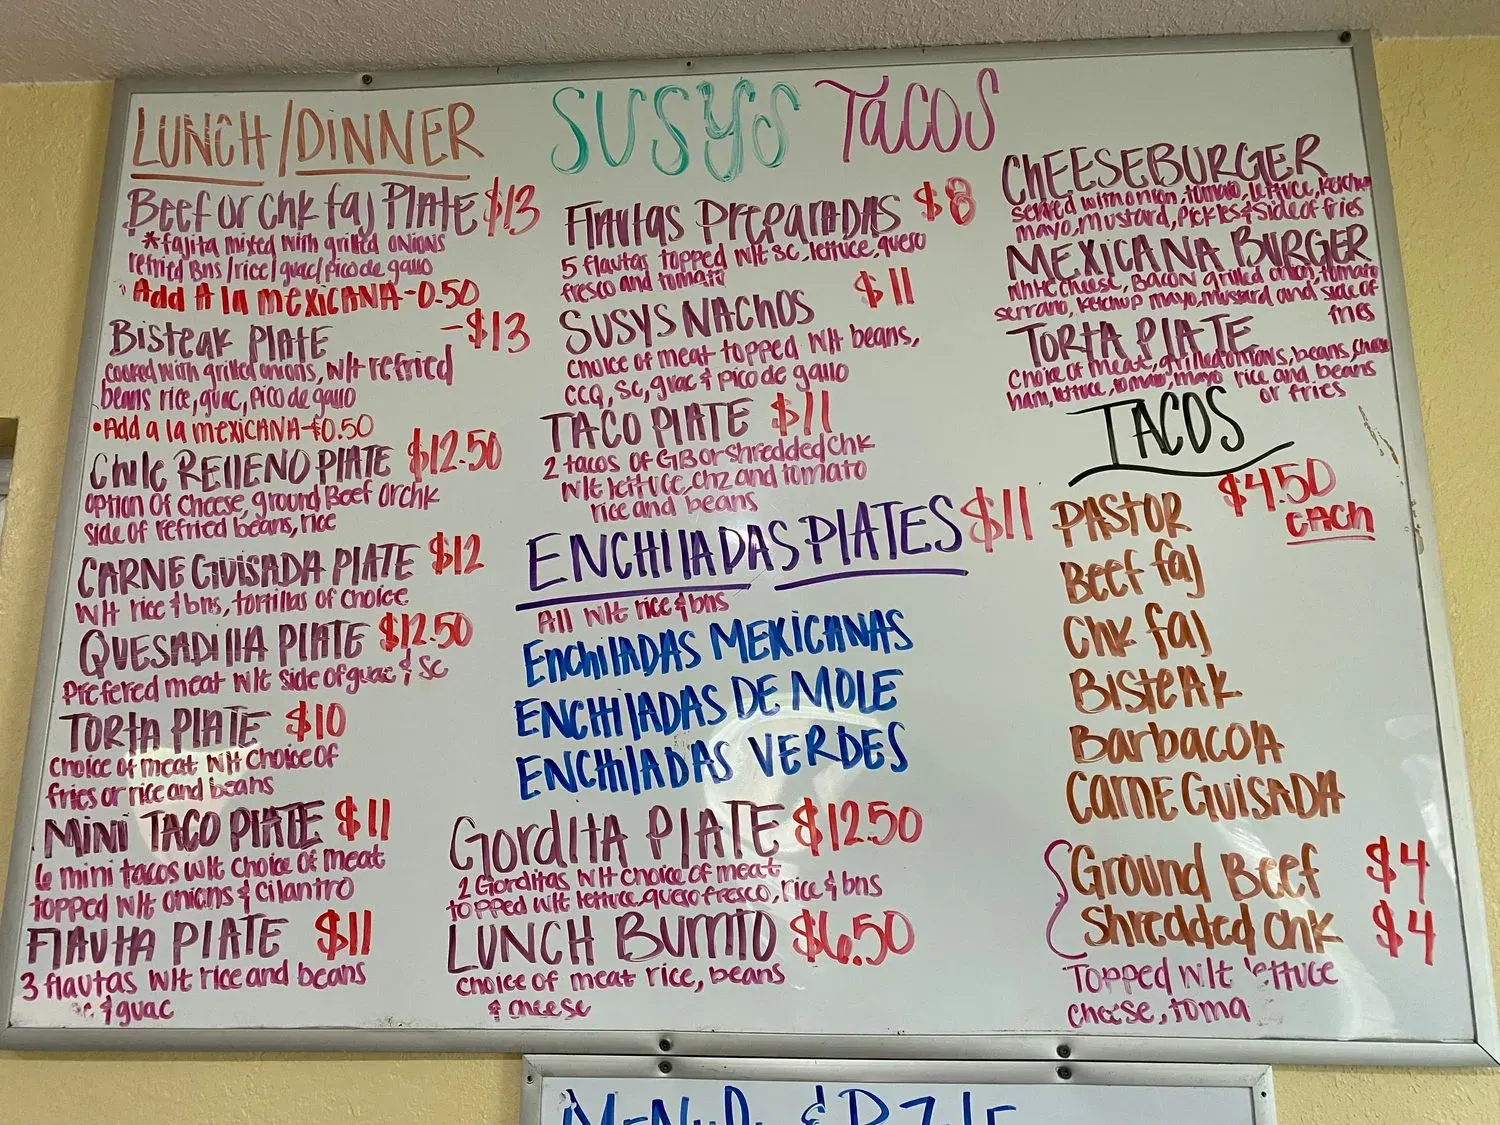 SUSYS TACOS
LUNCH/DINNER
Beef or Chk faj PLATE $13
*fajita mixed with grilled onions
refried Bns/rice/guac/pico de gallo
Add A la mexicana-0.50
Bisteak Plate -$13
cooked with grilled onions, wit refried
beans rice, guac, pico de gallo
•Add a la mexicana-$0.50
Chile RELLENO PLATE $12.50
option of cheese, ground Beef or chk
side of refried beans, rice
CARNE GUISADA PLATE $12
wit rice & bns, tortillas of choice
QUESADILLA PLATE $12.50
Prefered meat wit side of guac & sc
TORTA PLATE $10
Choice of meat wit Choice of
fries or rice and beans
MINI TACO PLATE $11
6 mini tacos wit choice of meat
topped wit onions & cilantro
FLAUTA PLATE $11
3 flautas wit rice and beans
& guac
Flautas PrepaRADAS $8
5 flautas topped wit sc, lettuce, queso
fresco and tomato
SUSYS NACHOS $11
Choice of meat topped wit beans,
CCQ, SC, guac & pico de gallo
TACO PLATE $11
2 tacos of GB or shredded chk
wit lettuce, chz and tomato
rice and beans
ENCHILADAS PLATES $11
All wit rice & bns
Enchiladas MEXICANAS
ENCHILADAS DE MOLE
ENCHILADAS VERDES
Gordita PLATE $12.50
2 Gorditas wit choice of meat
topped wit lettuce, queso fresco, rice & bns
LUNCH Burrito $6.50
choice of meat rice, beans
& cheese
ChEESEBURGER
served w/ onion, tomato, lettuce, ketchup
mayo, mustard, pickles & side of fries
MEXICANA BURGER
white cheese, Bacon grilled onion, tomato
serrano, ketchup mayo, mustard and side of
fries
TORTA PLATE
Choice of meat, grilled onions, beans, cheese
ham, lettuce, tomato, mayo rice and beans
or fries
TACOS
$4.50
each
PASTOR
Beef faj
Chk faj
BISTEAK
Barbacoa
CARNE GUISADA
Ground Beef $4
Shredded chk $4
Topped wit lettuce
cheese, toma